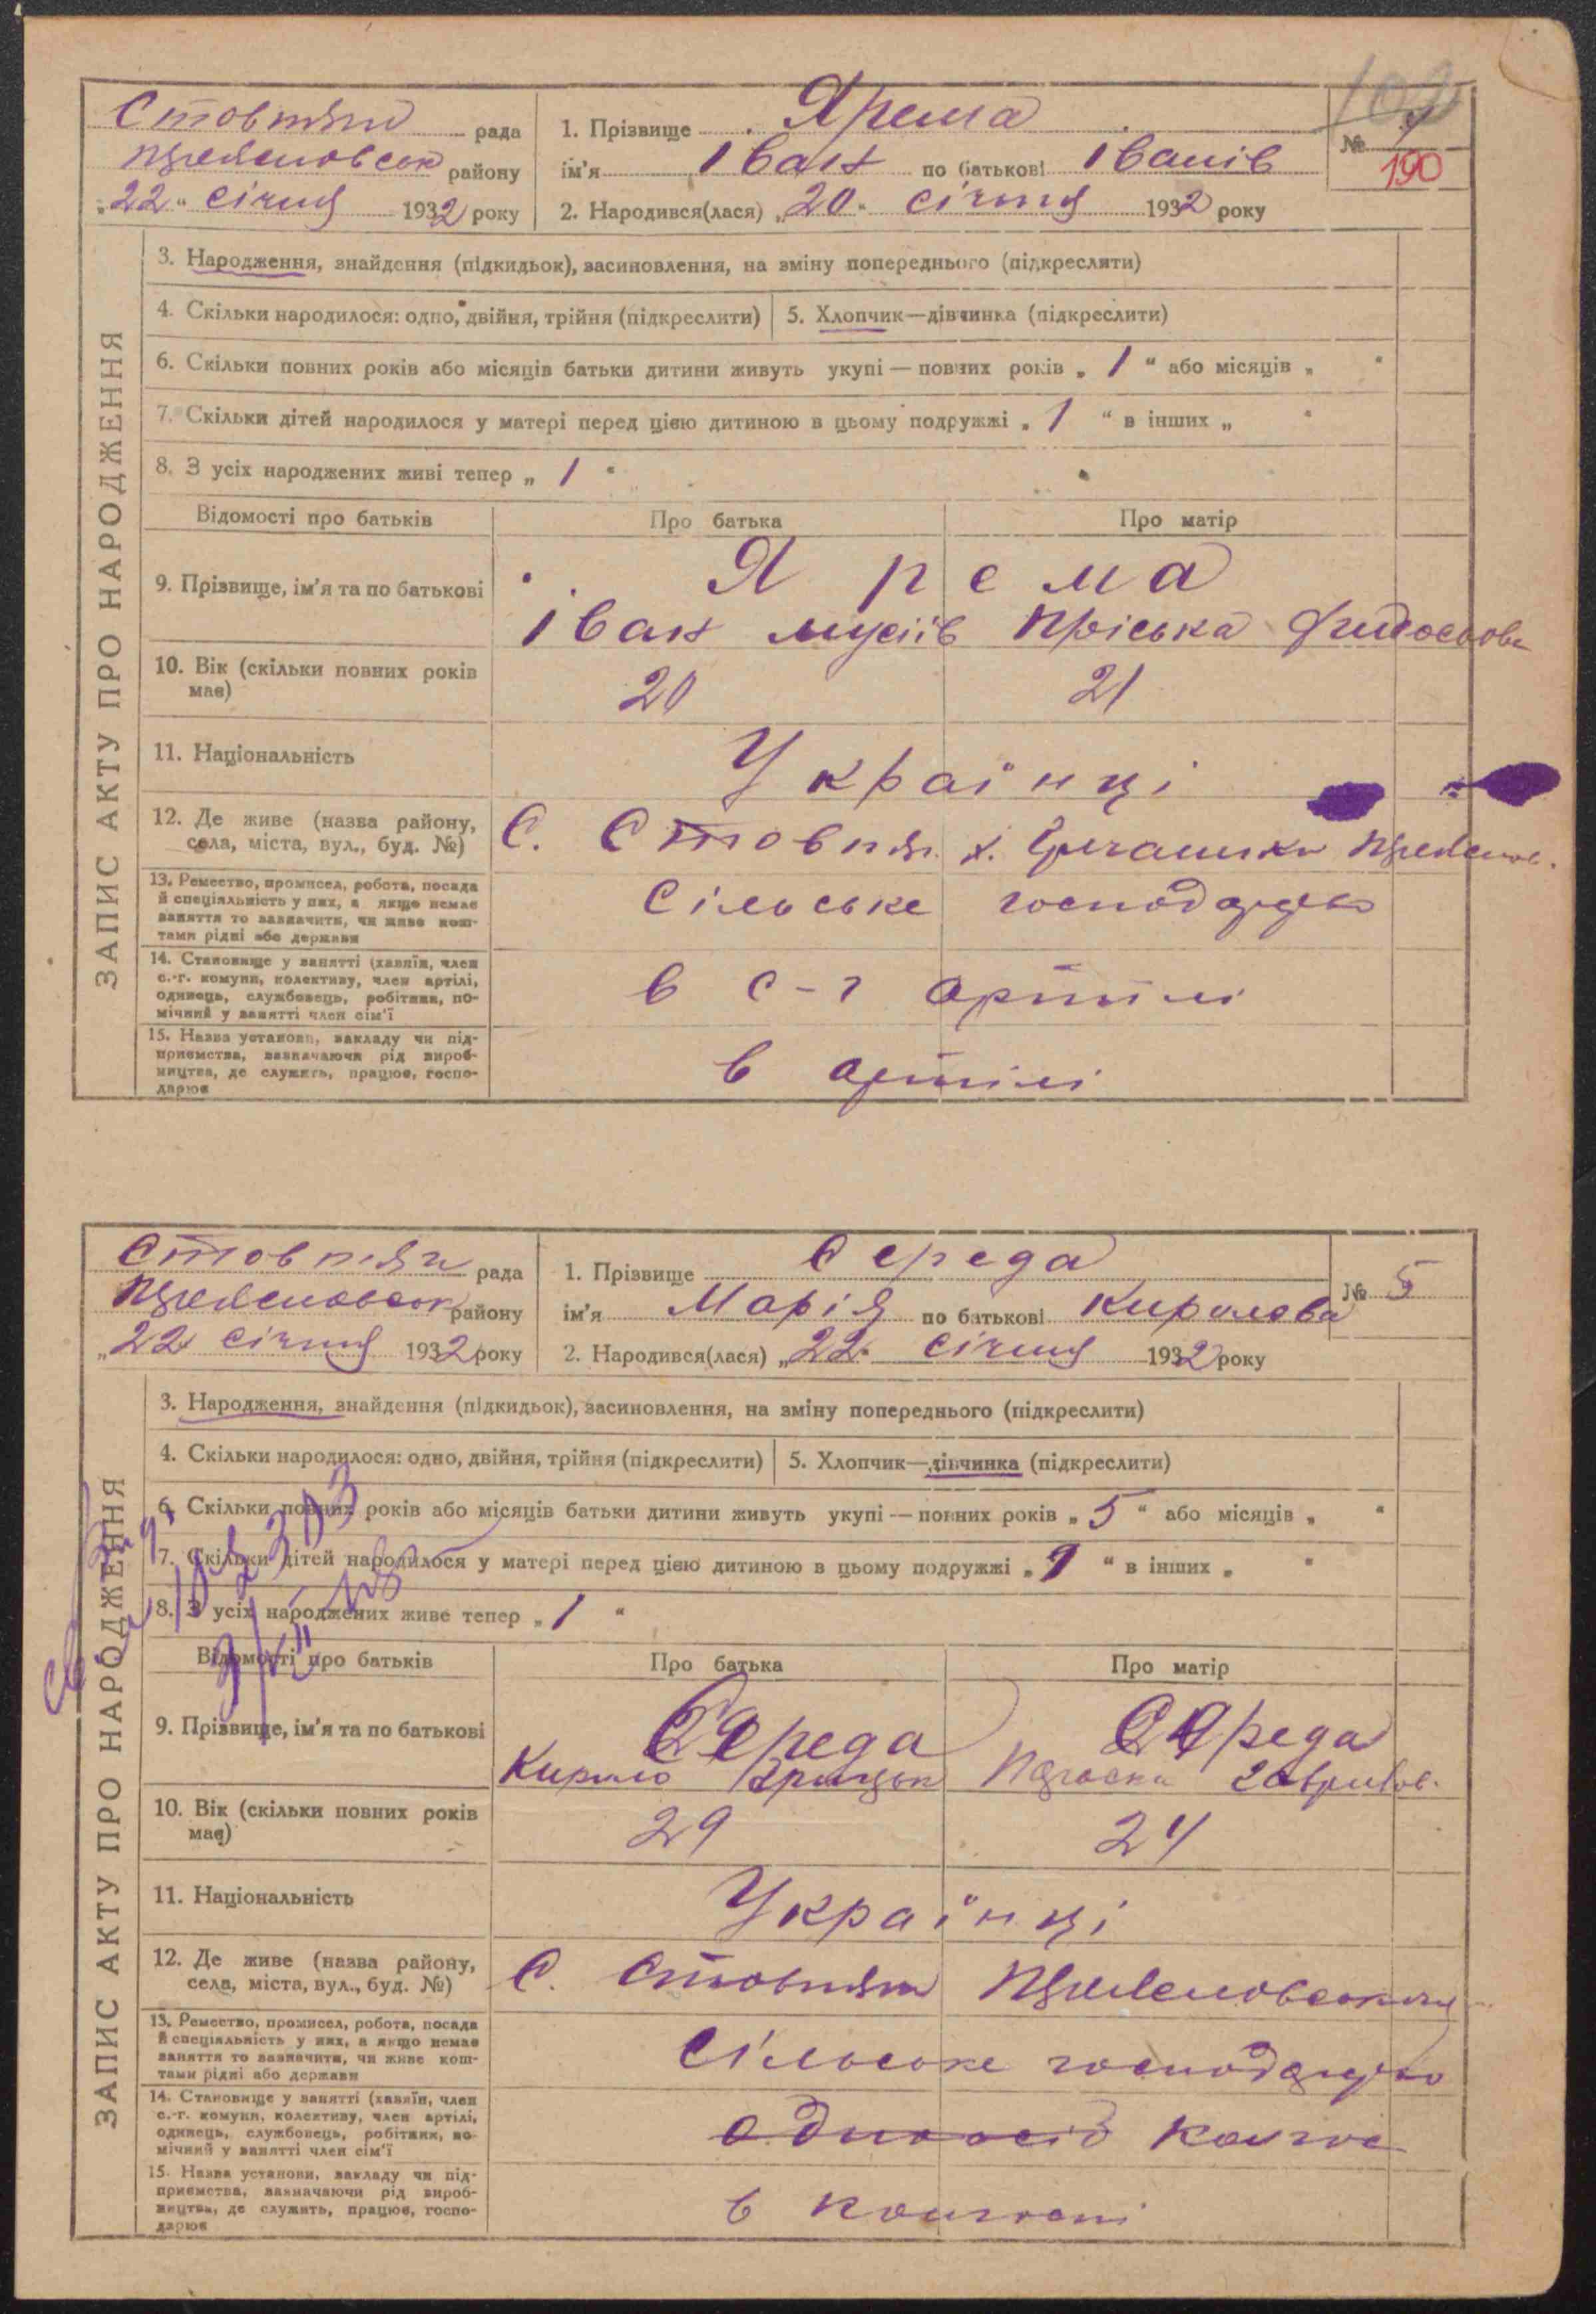 102
Стовпяги рада
району
„22“ січня 1932 року
1. Прізвище Ярема
ім'я Іван по батькові Іванів
2. Народився(лася) „20“ січня 1932 року
№
190
ЗАПИС АКТУ ПРО НАРОДЖЕННЯ
3. Народження, знайдення (підкидьок), засиновлення, на зміну попереднього (підкреслити)
4. Скільки народилося: одно, двійня, трійня (підкреслити)
5. Хлопчик—дівчинка (підкреслити)
6. Скільки повних років або місяців батьки дитини живуть укупі — повних років „ 1 “ або місяців „ “
7. Скільки дітей народилося у матері перед цією дитиною в цьому подружжі „ 1 “ в інших „ “
8. З усіх народжених живі тепер „ 1 “
Відомості про батьків Про батька Про матір
9. Прізвище, ім'я та по батькові
Ярема
Іван Мусіїв Пріська
10. Вік (скільки повних років має)
20 21
11. Національність
Українці
12. Де живе (назва району, села, міста, вул., буд. №)
С. Стовпяг. х.
13. Ремество, промисел, робота, посада й спеціяльність у них, а якщо немає заняття то зазначити, чи живе коштами рідні або держави
Сільське господарство
14. Становище у занятті (хазяїн, член с.-г. комуни, колективу, член артілі, одинець, службовець, робітник, помічний у занятті член сім'ї
в с-г артілі
15. Назва установи, закладу чи підприємства, зазначаючи рід виробництва, де служить, працює, господарює
в артілі
Стовпяги рада
району
„22“ січня 1932 року
1. Прізвище Середа
ім'я Марія по батькові Кирилова
2. Народився(лася) „22“ січня 1932 року
№ 5
ЗАПИС АКТУ ПРО НАРОДЖЕННЯ
3. Народження, знайдення (підкидьок), засиновлення, на зміну попереднього (підкреслити)
4. Скільки народилося: одно, двійня, трійня (підкреслити)
5. Хлопчик—дівчинка (підкреслити)
6. Скільки повних років або місяців батьки дитини живуть укупі — повних років „ 5 “ або місяців „ “
7. Скільки дітей народилося у матері перед цією дитиною в цьому подружжі „ “ в інших „ “
8. З усіх народжених живе тепер „ 1 “
Відомості про батьків Про батька Про матір
9. Прізвище, ім'я та по батькові
Середа Середа
Кирило
10. Вік (скільки повних років має)
29 24
11. Національність
Українці
12. Де живе (назва району, села, міста, вул., буд. №)
С. Стовпяги
13. Ремество, промисел, робота, посада й спеціяльність у них, а якщо немає заняття то зазначити, чи живе коштами рідні або держави
Сільське господарство
14. Становище у занятті (хазяїн, член с.-г. комуни, колективу, член артілі, одинець, службовець, робітник, помічний у занятті член сім'ї
одноосіб колгос
15. Назва установи, закладу чи підприємства, зазначаючи рід виробництва, де служить, працює, господарює
в колгоспі